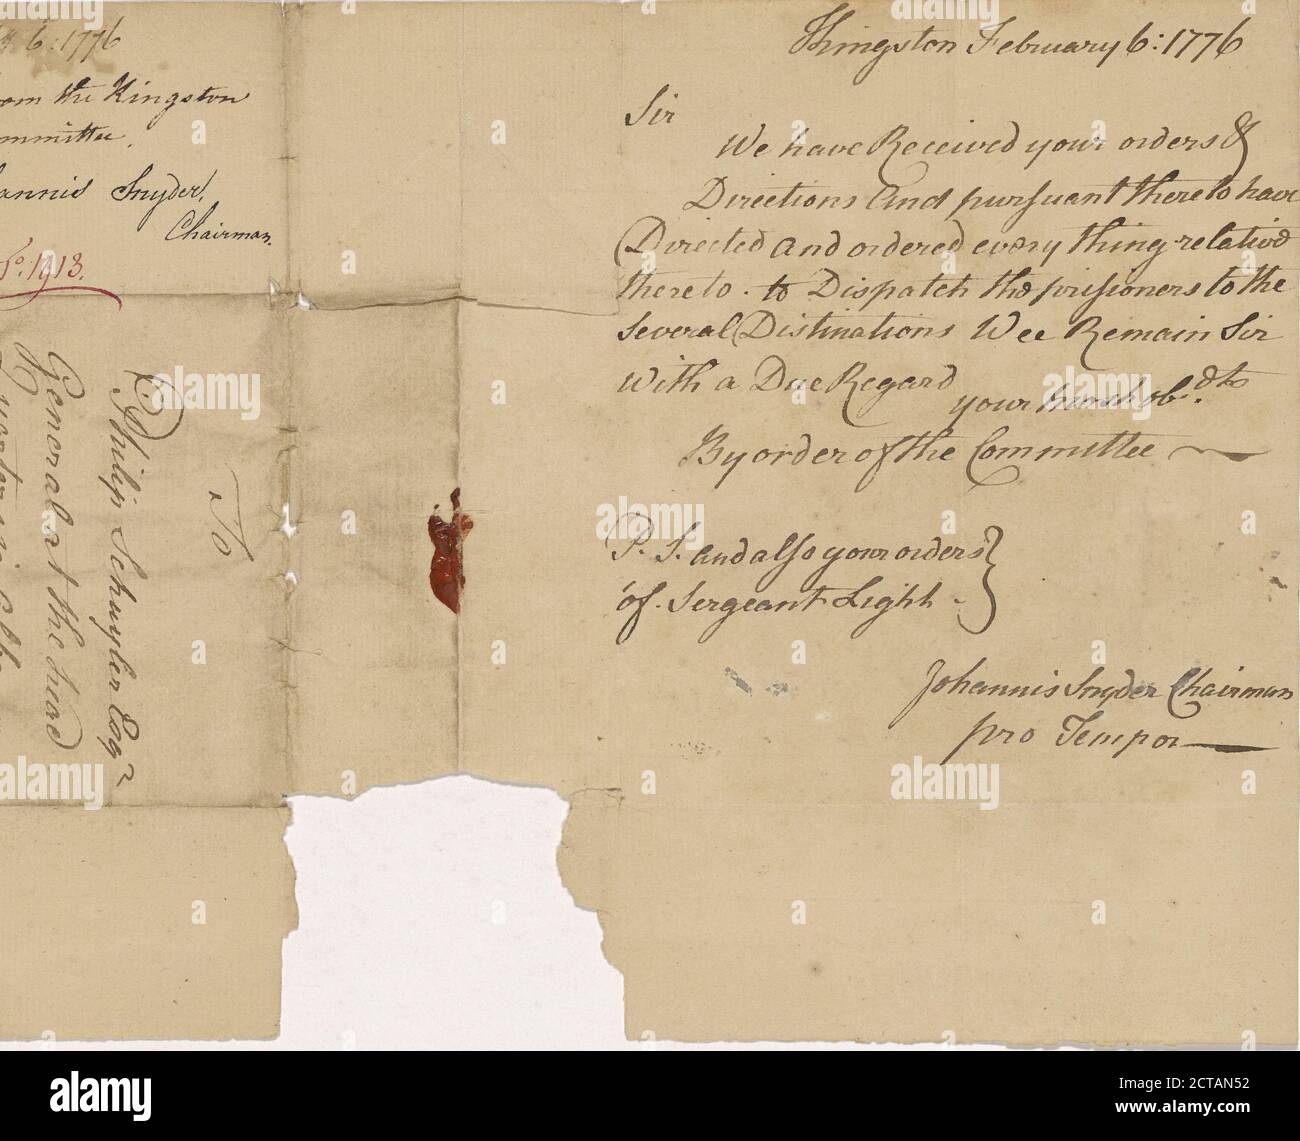 6: 1776
the Kingston
Snyder,
Chairman.
1913.
To
Philip Schuyler Esqr
General at the
Kingston February 6: 1776
Sir
We have Received your orders &
Directions and pursuant thereto have
Directed and ordered every thing relative
thereto. to Dispatch the prisoners to the
Several Distinations Wee Remain Sir
With a Due Regard
your humbl obdts
By order of the Committee
P. S. and also your orders
of Sergeant Light
Johannis Snyder Chairman
pro Tempor
alamy
alamy
Image ID: 2CTAN52
www.alamy.com